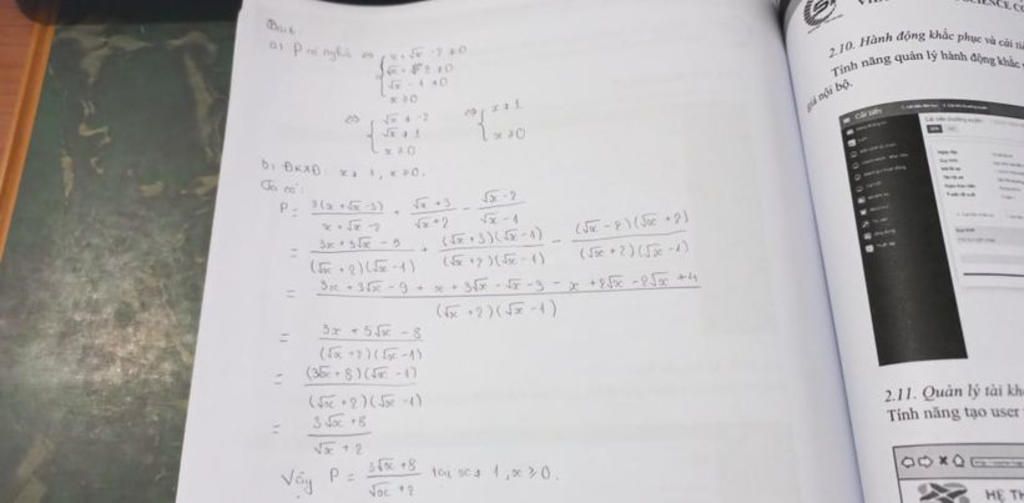 Bài 1:
a) P có nghĩa ⇔ { x + √x - 2 ≠ 0
√x + 2 ≠ 0
√x - 1 ≠ 0
x ≥ 0
⇔ { √x ≠ -2
√x ≠ 1
x ≥ 0
⇔ { x ≠ 1
x ≥ 0
b) ĐKXĐ: x ≠ 1, x ≥ 0.
Ta có:
P = 3(x + √x - 3) / (x + √x - 2) + (√x + 3) / (√x + 2) - (√x - 2) / (√x - 1)
= (3x + 3√x - 9) / ((√x + 2)(√x - 1)) + ((√x + 3)(√x - 1)) / ((√x + 2)(√x - 1)) - ((√x - 2)(√x + 2)) / ((√x + 2)(√x - 1))
= (3x + 3√x - 9 + x + 3√x - √x - 3 - x + 2√x - 2√x + 4) / ((√x + 2)(√x - 1))
= (3x + 5√x - 8) / ((√x + 2)(√x - 1))
= ((3√x + 8)(√x - 1)) / ((√x + 2)(√x - 1))
= (3√x + 8) / (√x + 2)
Vậy P = (3√x + 8) / (√x + 2) tại x ≠ 1, x ≥ 0.
SCIENCE CO
2.10. Hành động khắc phục và cải
Tính năng quản lý hành động khắc
giá nội bộ.
Cải tiến
2.11. Quản lý tài kh
Tính năng tạo user
HỆ TH